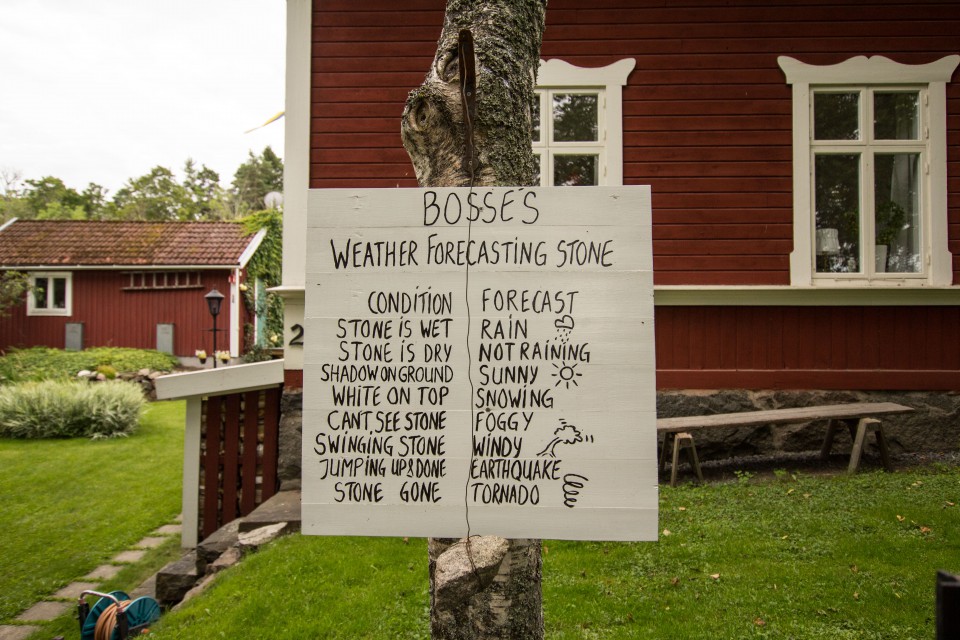 BOSSE'S
WEATHER FORECASTING STONE
CONDITION FORECAST
STONE IS WET RAIN
STONE IS DRY NOT RAINING
SHADOW ON GROUND SUNNY
WHITE ON TOP SNOWING
CANT SEE STONE FOGGY
SWINGING STONE WINDY
JUMPING UP&DONE EARTHQUAKE
STONE GONE TORNADO
2